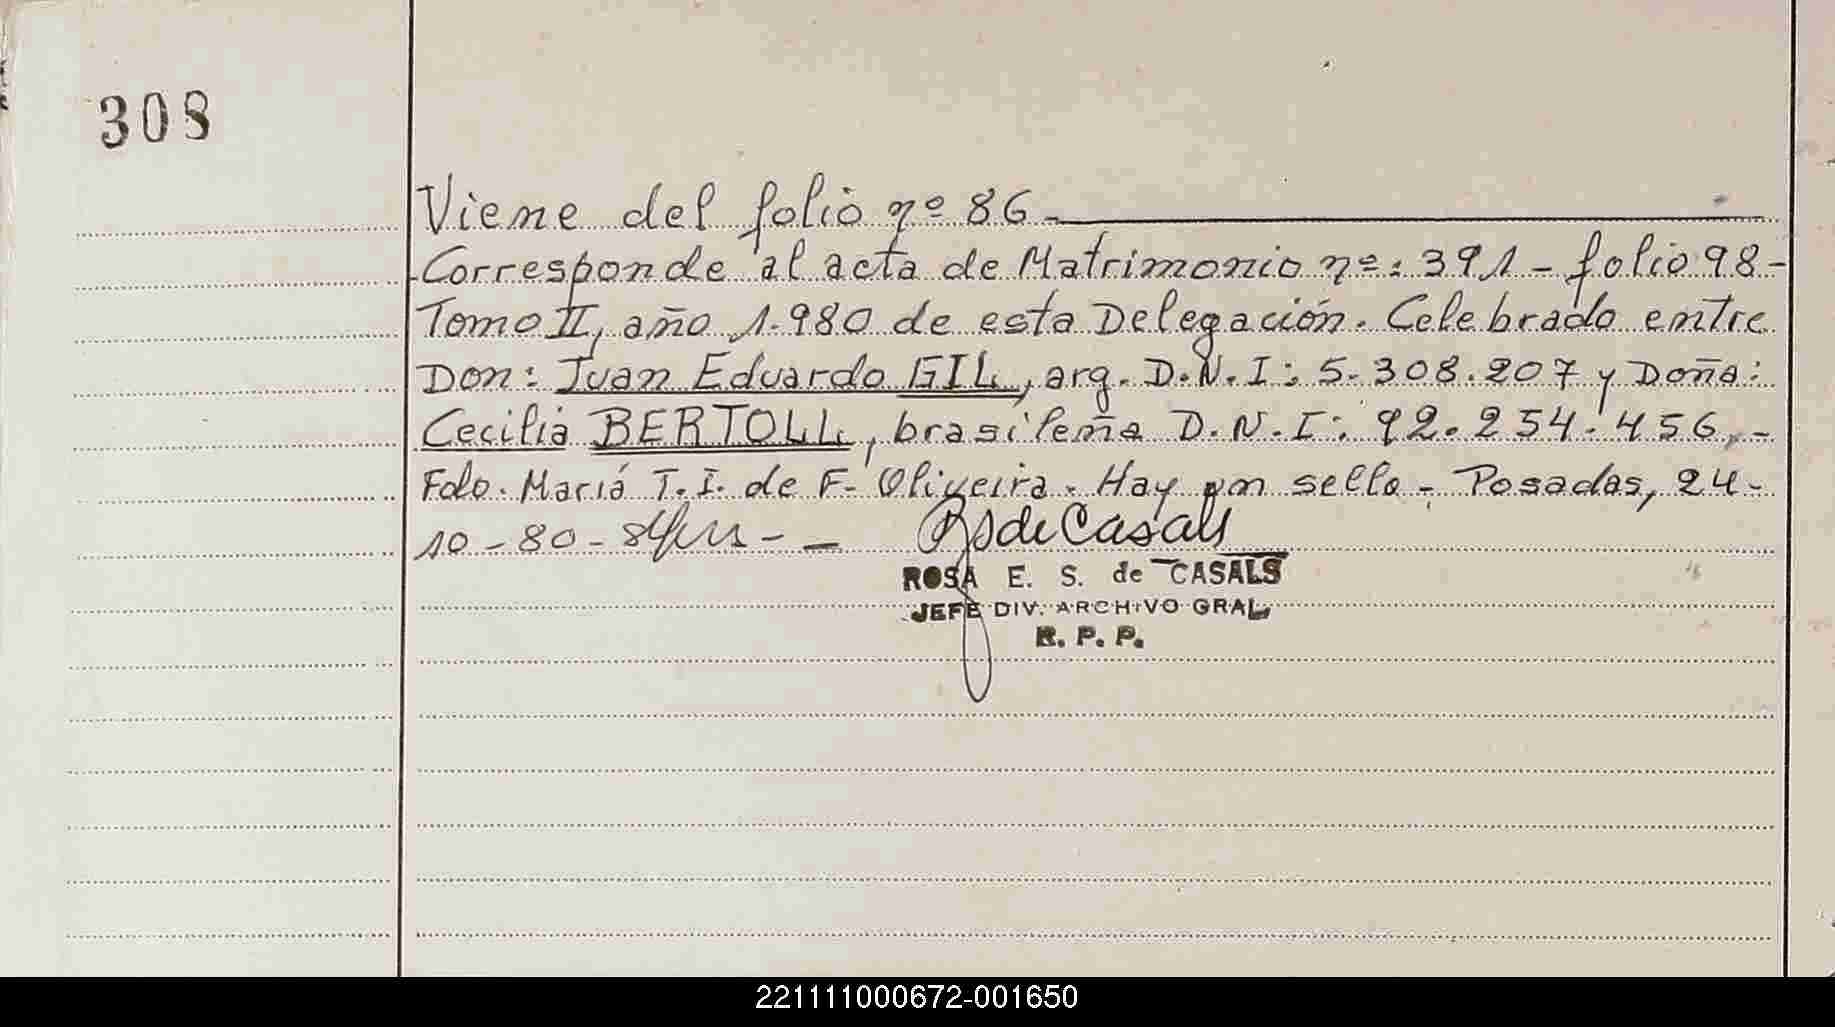 308
Viene del folio nº 86-
Corresponde al acta de Matrimonio nº: 391 - folio 98 -
Tomo II, año 1.980 de esta Delegación. Celebrado entre
Don: Juan Eduardo GIL, arg. D.N.I: 5.308.207 y Doña:
Cecilia BERTOLL, brasileña D.N.I: 92.254.456.-
Fdo. Mariá T.I. de F. Oliveira. Hay un sello - Posadas, 24-
10-80-
RS de Casals
ROSA E. S. de CASALS
JEFE DIV. ARCHIVO GRAL.
R. P. P.
221111000672-001650